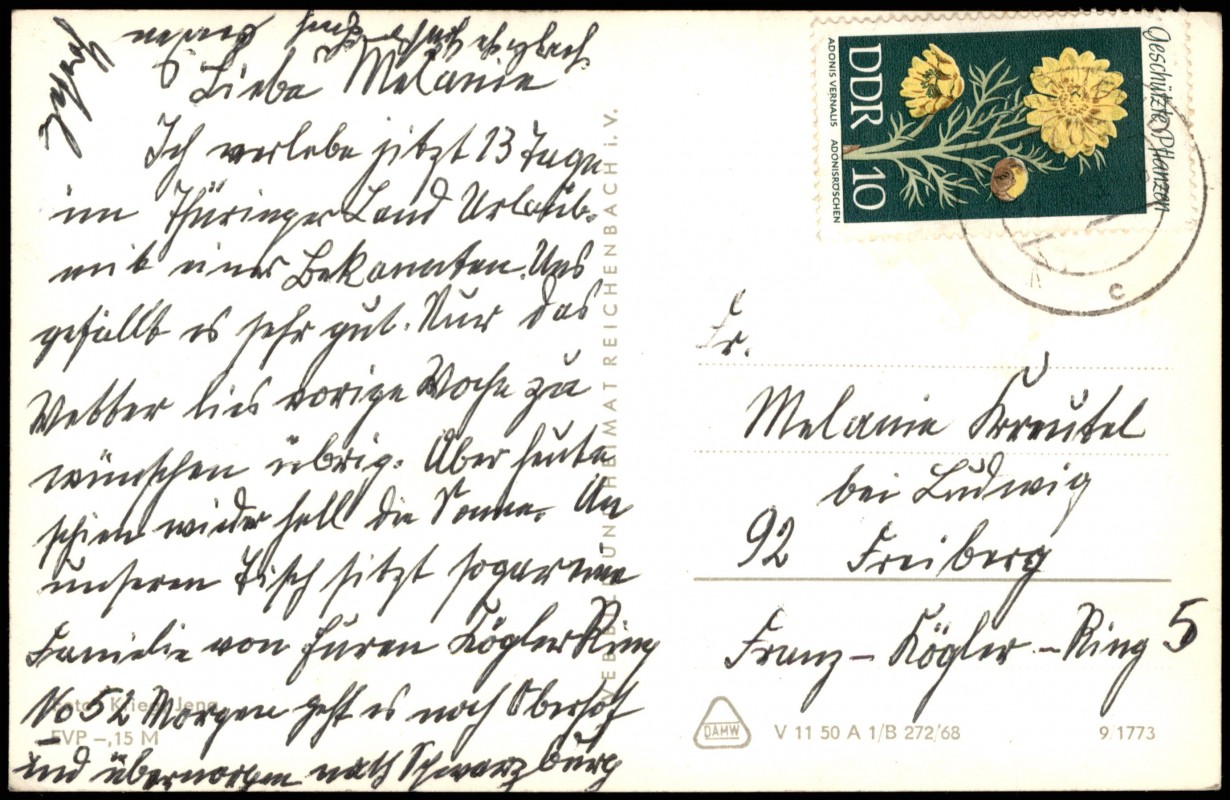 Liebe Melanie
Ich verlebe jetzt 13 Tage
im Thüringer Land Urlaub.
mit einer Bekannten. Uns
gefällt es sehr gut. Nur das
Wetter lies vorige Woche zu
wünschen übrig. Aber heute
schien wieder hell die Sonne. An
unseren Tisch sitzt sogar eine
Familie von Euren Kögler Ring
No 52 Morgen geht es nach Oberhof
und übermorgen nach Schwarzburg
VEB BILD UND HEIMAT REICHENBACH i. V.
Foto: Krieg, Jena
EVP -,15 M
Geschützte Pflanzen
DDR 10
ADONIS VERNALIS ADONISRÖSCHEN
c
Fr.
Melanie Kreutel
bei Ludwig
92 Freiberg
Franz-Kögler-Ring 5
DAMW
V 11 50 A 1/B 272/68
9/1773